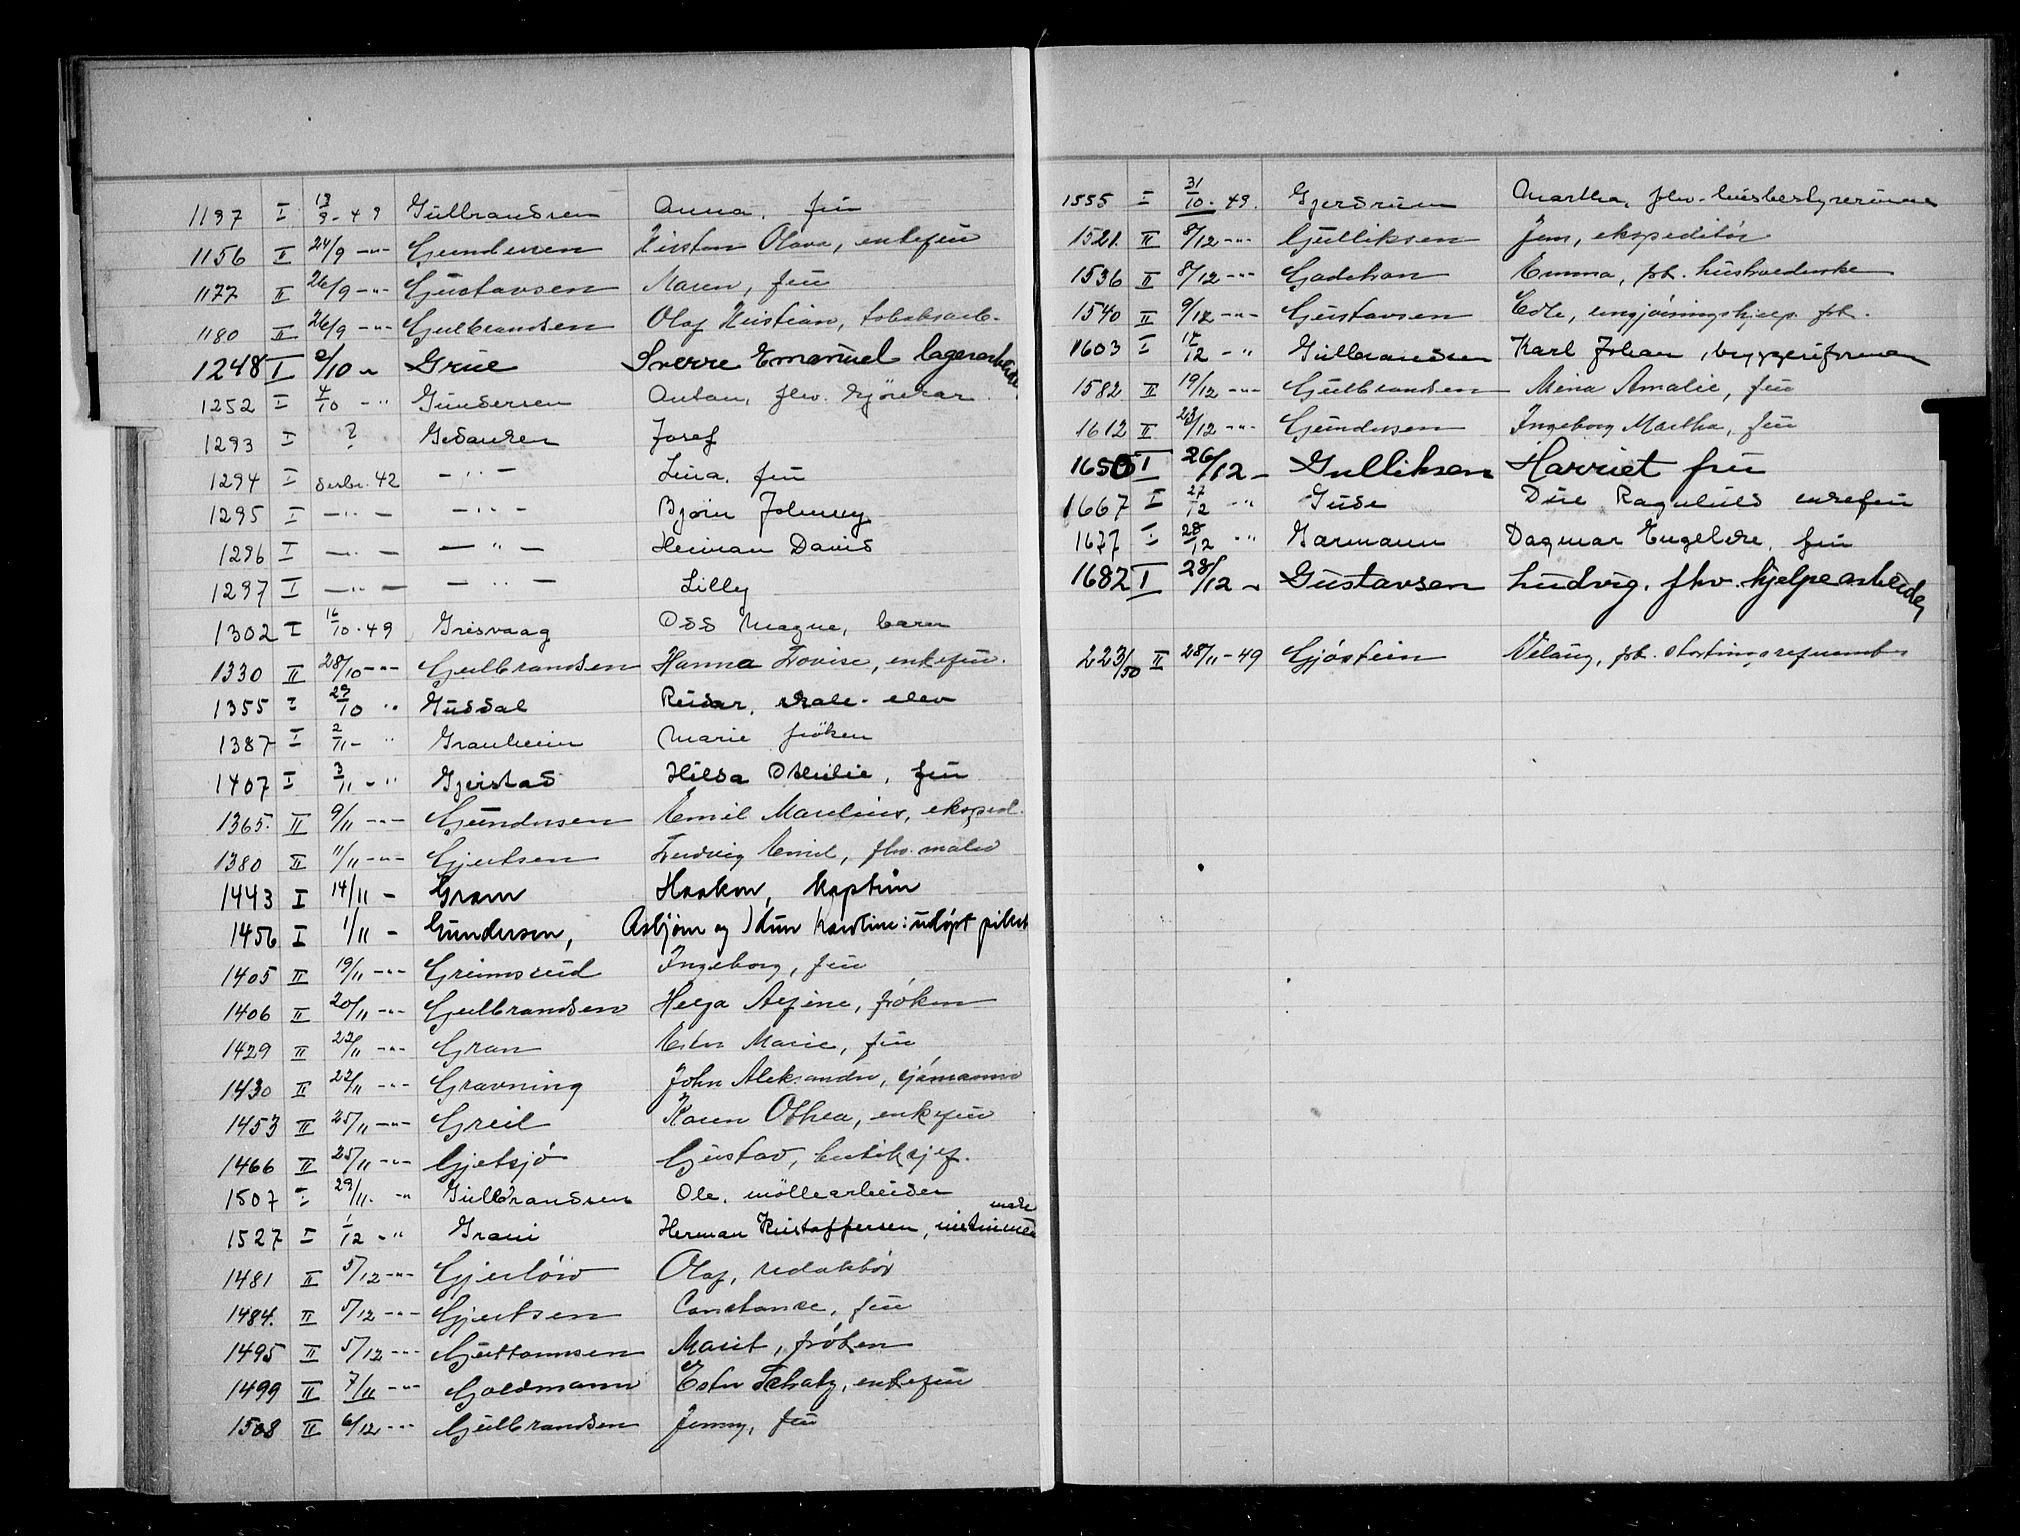 1137 I 13/9-49 Gulbrandsen Anna, fru
1156 II 24/9 -"- Gundersen Kirsten Olava, enkefru
1177 II 26/9 -"- Gustavsen Maren, fru
1180 II 26/9 -"- Gulbrandsen Olaf Kristian, tobaksarb.
1248 I 2/10 - Grue Sverre Emanuel lagerarbeider
1252 I 4/10 -" Gundersen Anton, fhv. kjörekar
1293 I ? Gedanken Josef
1294 I desbr. 42 -"- Lina, fru
1295 I -"- -"- Björn Johnny
1296 I -"- -"- Herman David
1297 I -"- -"- Lilly
1302 I 16/10-49 Grisvaag Odd Magne, barn
1330 II 28/10 -"- Gulbrandsen Hanna Lovise, enkefru.
1355 I 29/10 " Gusdal Reidar, skole-elev
1387 I 2/11 - " Granheim Marie fröken
1407 I 3/11 -" Gjerstad Hilda Othilie, fru
1365. II 9/11 -"- Gundersen Emil Marelius, eksped.
1380 II 11/11 -"- Gjertsen Ludvig Emil, fhv. maler
1443 I 14/11 - Gram Haakon, kaptein
1456 I 1/11 - Gundersen, Asbjörn og Idun Karoline: udöpt pikeb
1405 II 19/11 -"- Grimsrud Ingeborg, fru
1406 II 20/11 -"- Gulbrandsen Helga Alfine, fröken
1429 II 22/11 -"- Gran Ester Marie, fru
1430 II 22/11 -"- Gravning John Aleksander, sjömann
1453 II 25/11 -"- Greil Karen Othea, enkefru
1466 II 25/11 -"- Gjetsjö Gustav, butiksjef.
1507 I 29/11. " Gulbrandsen Ole, möllearbeider
1527 I 1/12 -" Grani Herman Kristoffersen, instrument
maker
1481 II 5/12 -"- Gjerlöw Olaf, redaktör
1484. II 5/12 -"- Gjertsen Constanse, fru
1495 II 5/12 -"- Guttormsen Marit, fröken
1499 II 7/11 -"- Goldmann Ester Schatz, enkefru
1508 II 6/12 -"- Gulbrandsen Jenny, fru
1555 I 31/10-49. Gjerdrum Martha, fhv. husbestyrerinne
1521. II 8/12 -"- Gulliksen Jens, ekspeditör
1536 II 8/12 -"- Gadehan Emma, fhv. husholderske
1540 II 9/12 -"- Gustavsen Edle, rengjöringshjelp fhv.
1603 I 12/12 -" Gulbrandsen Karl Johan, bryggeriformann
1582 II 19/12 -"- Gulbrandsen Mina Amalie, fru
1612 II 23/12 -"- Gundersen Ingeborg Martha, fru
1650 I 26/12 - Gulliksen Harriet fru
1667 I 27/12 " Gude Ragnhild enkefru
1677 I 28/12 " Garmann Dagmar Engelche, fru
1682 I 28/12 - Gustavsen Ludvig, fhv. hjelpearbeider
223/50 II 28/11-49 Gjöstein fhv. stortingsreferent